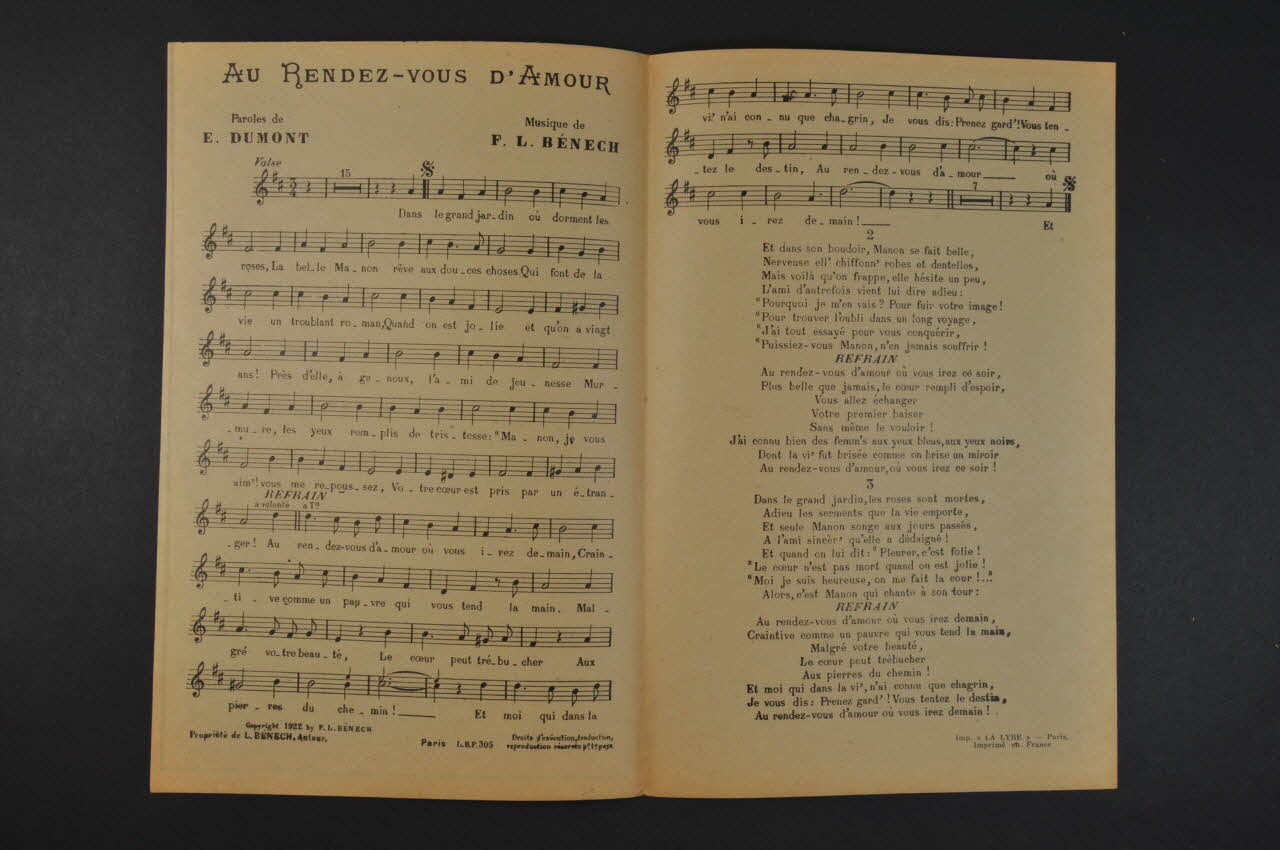 AU RENDEZ-VOUS D'AMOUR
Paroles de
E. DUMONT
Musique de
F. L. BÉNECH
Valse
15
Dans le grand jar_din où dorment les
roses, La bel_le Ma_non rêve aux dou_ces choses Qui font de la
vie un troublant ro_man, Quand on est jo_lie et qu'on a vingt
ans! Près d'elle, à ge_noux, l'a_mi de jeu_nesse Mur_
_mure, les yeux rem_plis de tris_tesse: "Ma_non, je vous
aim'! vous me re_pous_sez, Vo_tre cœur est pris par un é_tran_
REFRAIN
a volonté a Tº
_ger! Au ren_dez-vous d'a_mour où vous i_rez de_main, Crain_
_ti_ve comme un pau_vre qui vous tend la main. Mal_
gré vo_tre beau_té, Le cœur peut tré_bu_cher Aux
pier_res du che_min!____ Et moi qui dans la
Copyright 1922 by F. L. BÉNECH
Propriété de L. BÉNECH, Auteur.
Paris L.B.P. 305
Droits d'exécution, traduction,
reproduction réservés pr ts pays.
vi' n'ai con_nu que cha_grin, Je vous dis: Prenez gard'! Vous ten_
_tez le des_tin, Au ren_dez-vous d'a_mour____ où
7
vous i_rez de_main!____ Et
2
Et dans son boudoir, Manon se fait belle,
Nerveuse ell' chiffonn' robes et dentelles,
Mais voilà qu'on frappe, elle hésite un peu,
L'ami d'autrefois vient lui dire adieu:
"Pourquoi je m'en vais? Pour fuir votre image!
"Pour trouver l'oubli dans un long voyage,
"J'ai tout essayé pour vous conquérir,
"Puissiez-vous Manon, n'en jamais souffrir!
REFRAIN
Au rendez-vous d'amour où vous irez ce soir,
Plus belle que jamais, le cœur rempli d'espoir,
Vous allez échanger
Votre premier baiser
Sans même le vouloir!
J'ai connu bien des femm's aux yeux bleus, aux yeux noirs,
Dont la vi' fut brisée comme on brise un miroir
Au rendez-vous d'amour, où vous irez ce soir!
3
Dans le grand jardin, les roses sont mortes,
Adieu les serments que la vie emporte,
Et seule Manon songe aux jours passés,
A l'ami sincèr' qu'elle a dédaigné!
Et quand on lui dit: "Pleurer, c'est folie!
"Le cœur n'est pas mort quand on est jolie!
"Moi je suis heureuse, on me fait la cour!..."
Alors, c'est Manon qui chante à son tour:
REFRAIN
Au rendez-vous d'amour où vous irez demain,
Craintive comme un pauvre qui vous tend la main,
Malgré votre beauté,
Le cœur peut trébucher
Aux pierres du chemin!
Et moi qui dans la vi', n'ai connu que chagrin,
Je vous dis: Prenez gard'! Vous tentez le destin,
Au rendez-vous d'amour où vous irez demain!
Imp. « LA LYRE » — Paris.
Imprimé en France